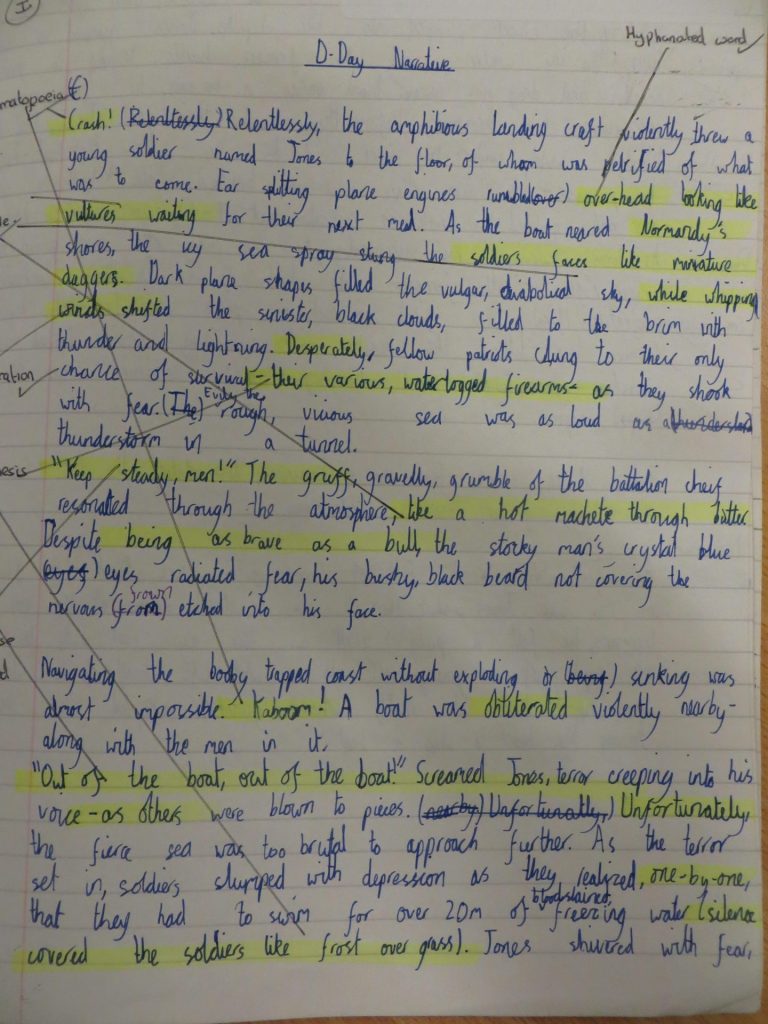 I
Hyphanated word
D-Day Narrative
matopoeia
Crash! (Relentlessly) Relentlessly, the amphibious landing craft violently threw a
young soldier named Jones to the floor, of whom was petrified of what
was to come. Ear splitting plane engines rumbled(over) over-head looking like
vultures waiting for their next meal. As the boat neared Normandy's
shores, the icy sea spray stung the soldiers faces like miniature
daggers. Dark plane shapes filled the vulgar, diabolical sky, while whipping
winds shifted the sinister, black clouds, filled to the brim with
thunder and lightning. Desperately, fellow patriots clung to their only
ration
chance of survival - their various, waterlogged firearms - as they shook
Evily, the
with fear. (The) rough, vicious sea was as loud as a (thunderstorm)
thunderstorm in a tunnel.
esis
"Keep steady, men!" The gruff, gravelly, grumble of the battalion cheif
resonated through the atmosphere, like a hot machete through butter.
Despite being as brave as a bull, the stocky man's crystal blue
(eyes) eyes radiated fear, his bushy, black beard not covering the
frown
nervous (from) etched into his face.
Navigating the booby trapped coast without exploding or (being) sinking was
almost impossible. Kaboom! A boat was obliterated violently nearby-
along with the men in it.
"Out of the boat, out of the boat!" Screamed Jones, terror creeping into his
voice - as others were blown to pieces. (nearby) Unfortunatly,) Unfortunately,
the fierce sea was too brutal to approach further. As the terror
set in, soldiers slumped with depression as they realized, one-by-one,
bloodstained,
that they had to swim for over 20m of freezing water (silence
covered the soldiers like frost over grass). Jones shivered with fear,